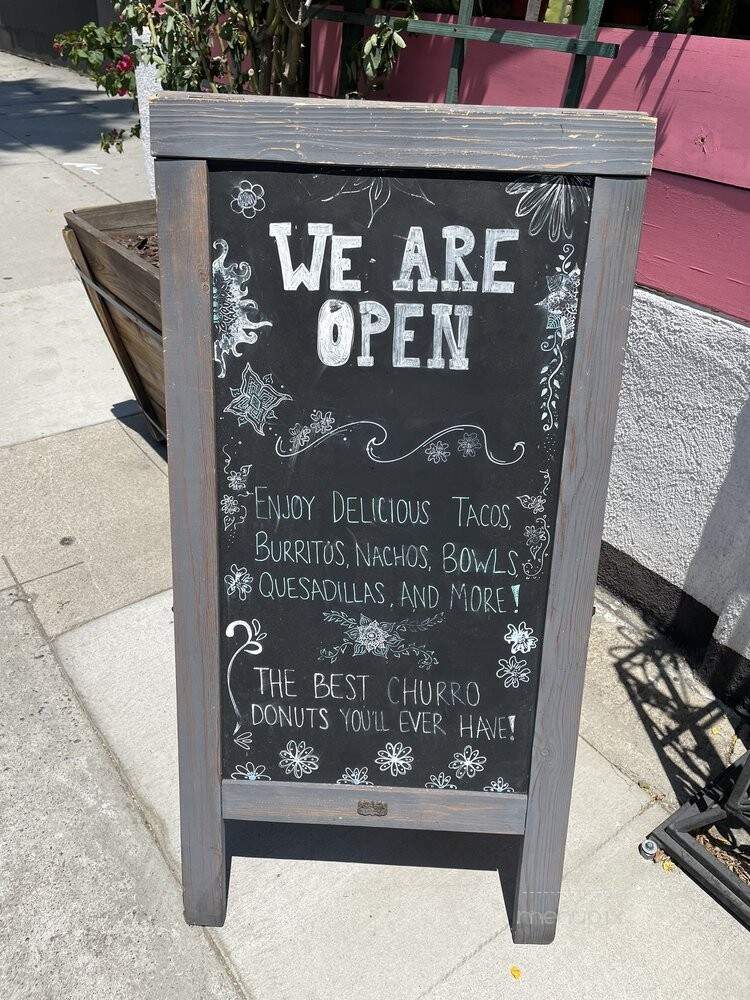 WE ARE
OPEN
ENJOY DELICIOUS TACOS,
BURRITOS, NACHOS, BOWLS,
QUESADILLAS, AND MORE!
THE BEST CHURRO
DONUTS YOU'LL EVER HAVE!